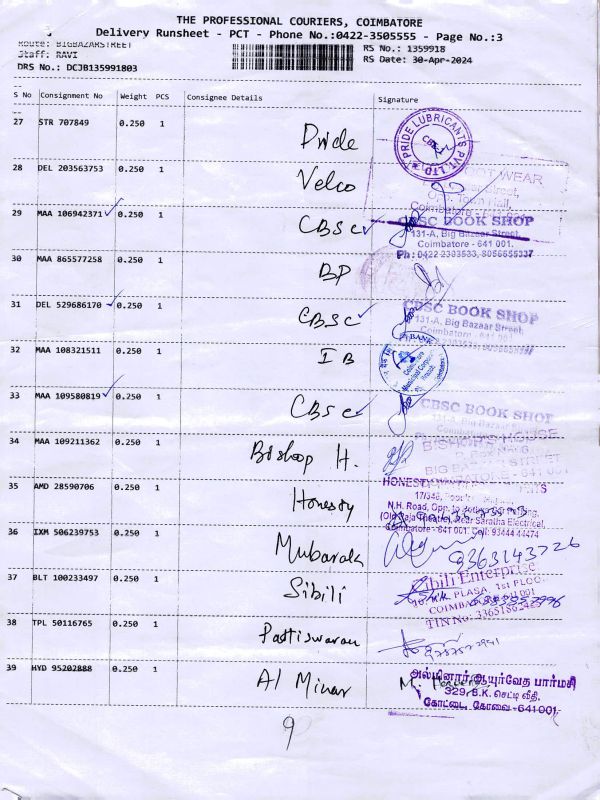 THE PROFESSIONAL COURIERS, COIMBATORE
Delivery Runsheet - PCT - Phone No.:0422-3505555 - Page No.:3
Route: BIGBAZARSTREET
RS No.: 1359918
Staff: RAVI
RS Date: 30-Apr-2024
DRS No.: DCJB135991803
S No Consignment No Weight PCS Consignee Details Signature
27 STR 707849 0.250 1 Pride
PRIDE LUBRICANTS PVT. LTD
CBE
28 DEL 203563753 0.250 1 Velco
WEAR
Street,
Town Hall,
Coimbatore
29 MAA 106942371 0.250 1 CBSC
CBSC BOOK SHOP
131-A, Big Bazaar Street,
Coimbatore - 641 001.
Ph: 0422 2303533, 8056655337
30 MAA 865577258 0.250 1 BP
31 DEL 529686170 0.250 1 CBSC
CBSC BOOK SHOP
131-A, Big Bazaar Street,
Coimbatore - 641 001
32 MAA 108321511 0.250 1 IB
BANK
Coimbatore
Municipal Corporation
Branch
33 MAA 109580819 0.250 1 CBSC
CBSC BOOK SHOP
131-A, Big Bazaar Street
34 MAA 109211362 0.250 1 Bishop H.
BISHOP'S HOUSE
BIG BAZAAR STREET
COIMBATORE - 641 001
35 AMD 28590706 0.250 1 Honesty
HONESTY
17/348,
N.H. Road, Opp. to
(Old Raja Theatre), Near Saratha Electrical,
Coimbatore - 641 001. Cell: 93444 44474
36 IXM 506239753 0.250 1 Mubarak
9363143726
37 BLT 100233497 0.250 1 Sibili
Sibili Enterprise
PLASA, 1st FLOOR
COIMBATORE 641 001
38 TPL 50116765 0.250 1 Pattiswaran
39 HYD 95202888 0.250 1 Al Minar
அல்மினார் ஆயுர்வேத பார்மசி
329, B.K. செட்டி வீதி,
கோட்டை, கோவை - 641001.
9